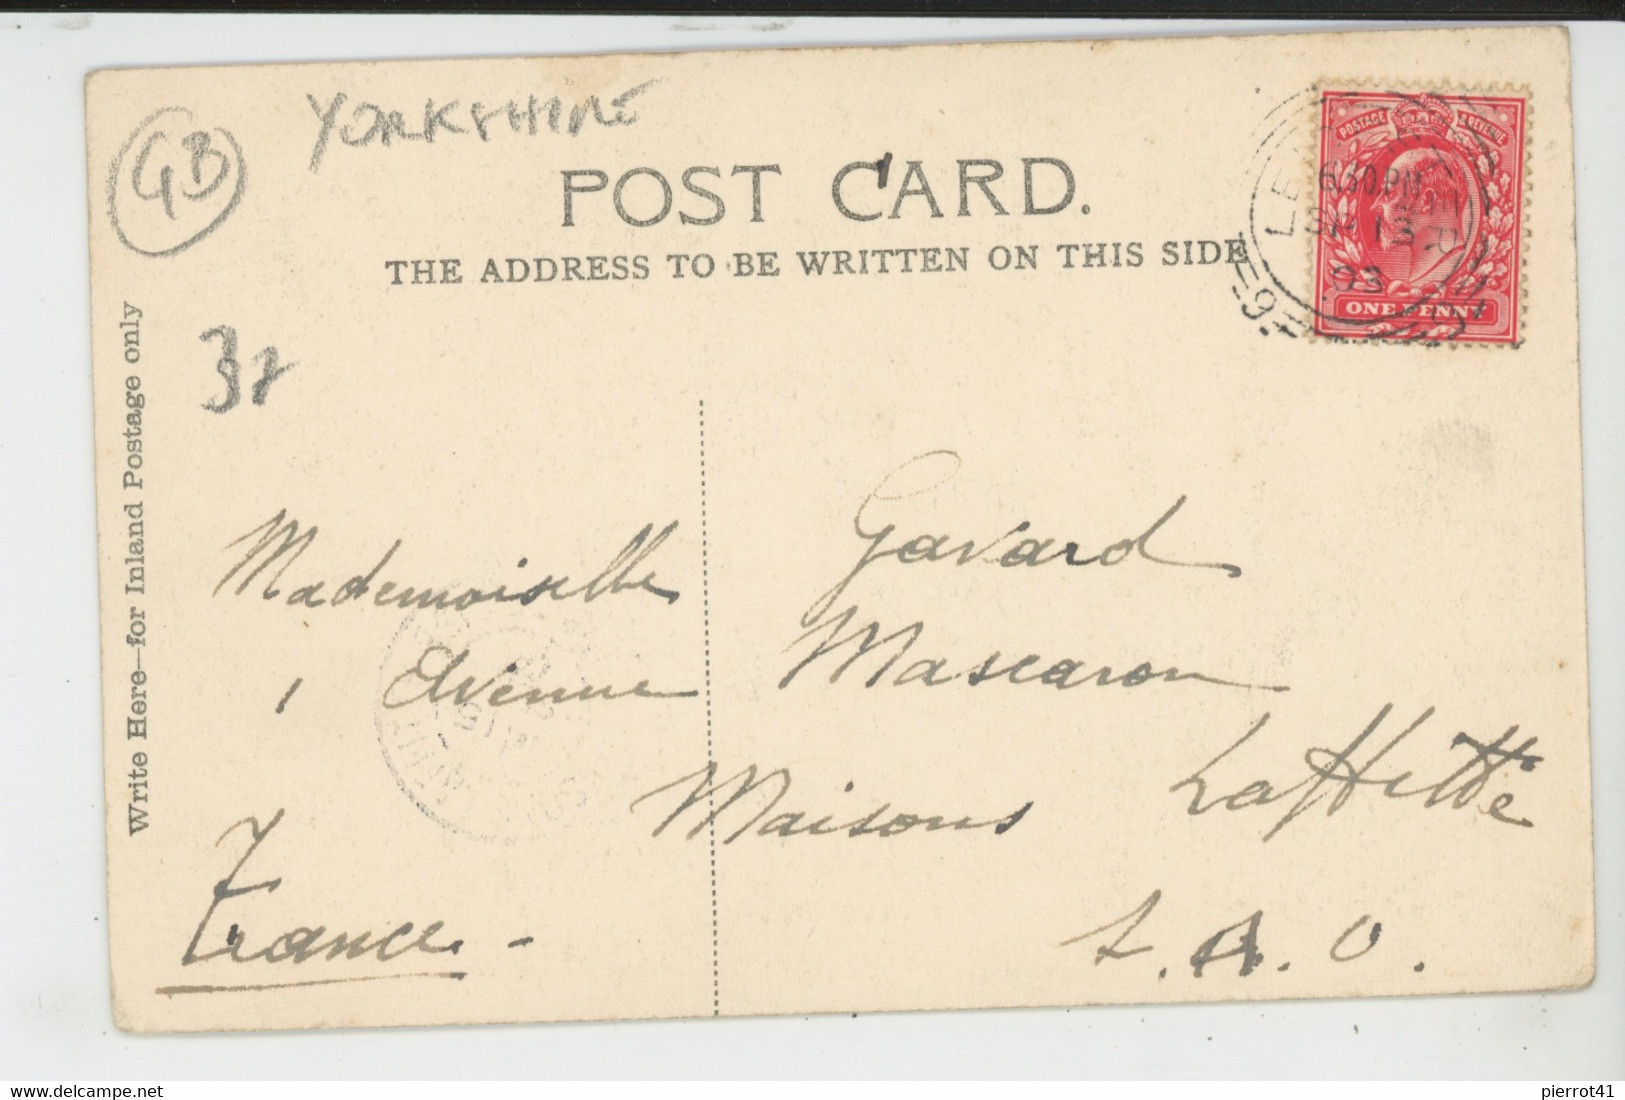 GB
YORKSHIRE
POST CARD.
THE ADDRESS TO BE WRITTEN ON THIS SIDE
POSTAGE & REVENUE
6.30.PM
SP 13
03
ONE PENNY
9
Write Here—for Inland Postage only
Mademoiselle Gavard
1 Avenue Mascaron
Maisons Laffitte
S. & O.
France. -
pierrot41
www.delcampe.net